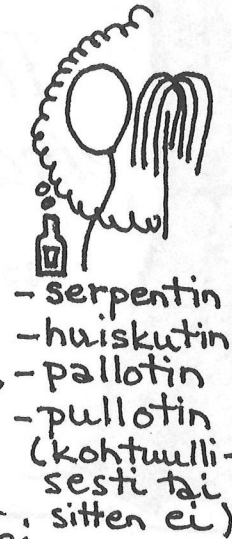 - serpentin
- huiskutin
- pallotin
- pullotin
(kohtuulli-
sesti tai
sitten ei)